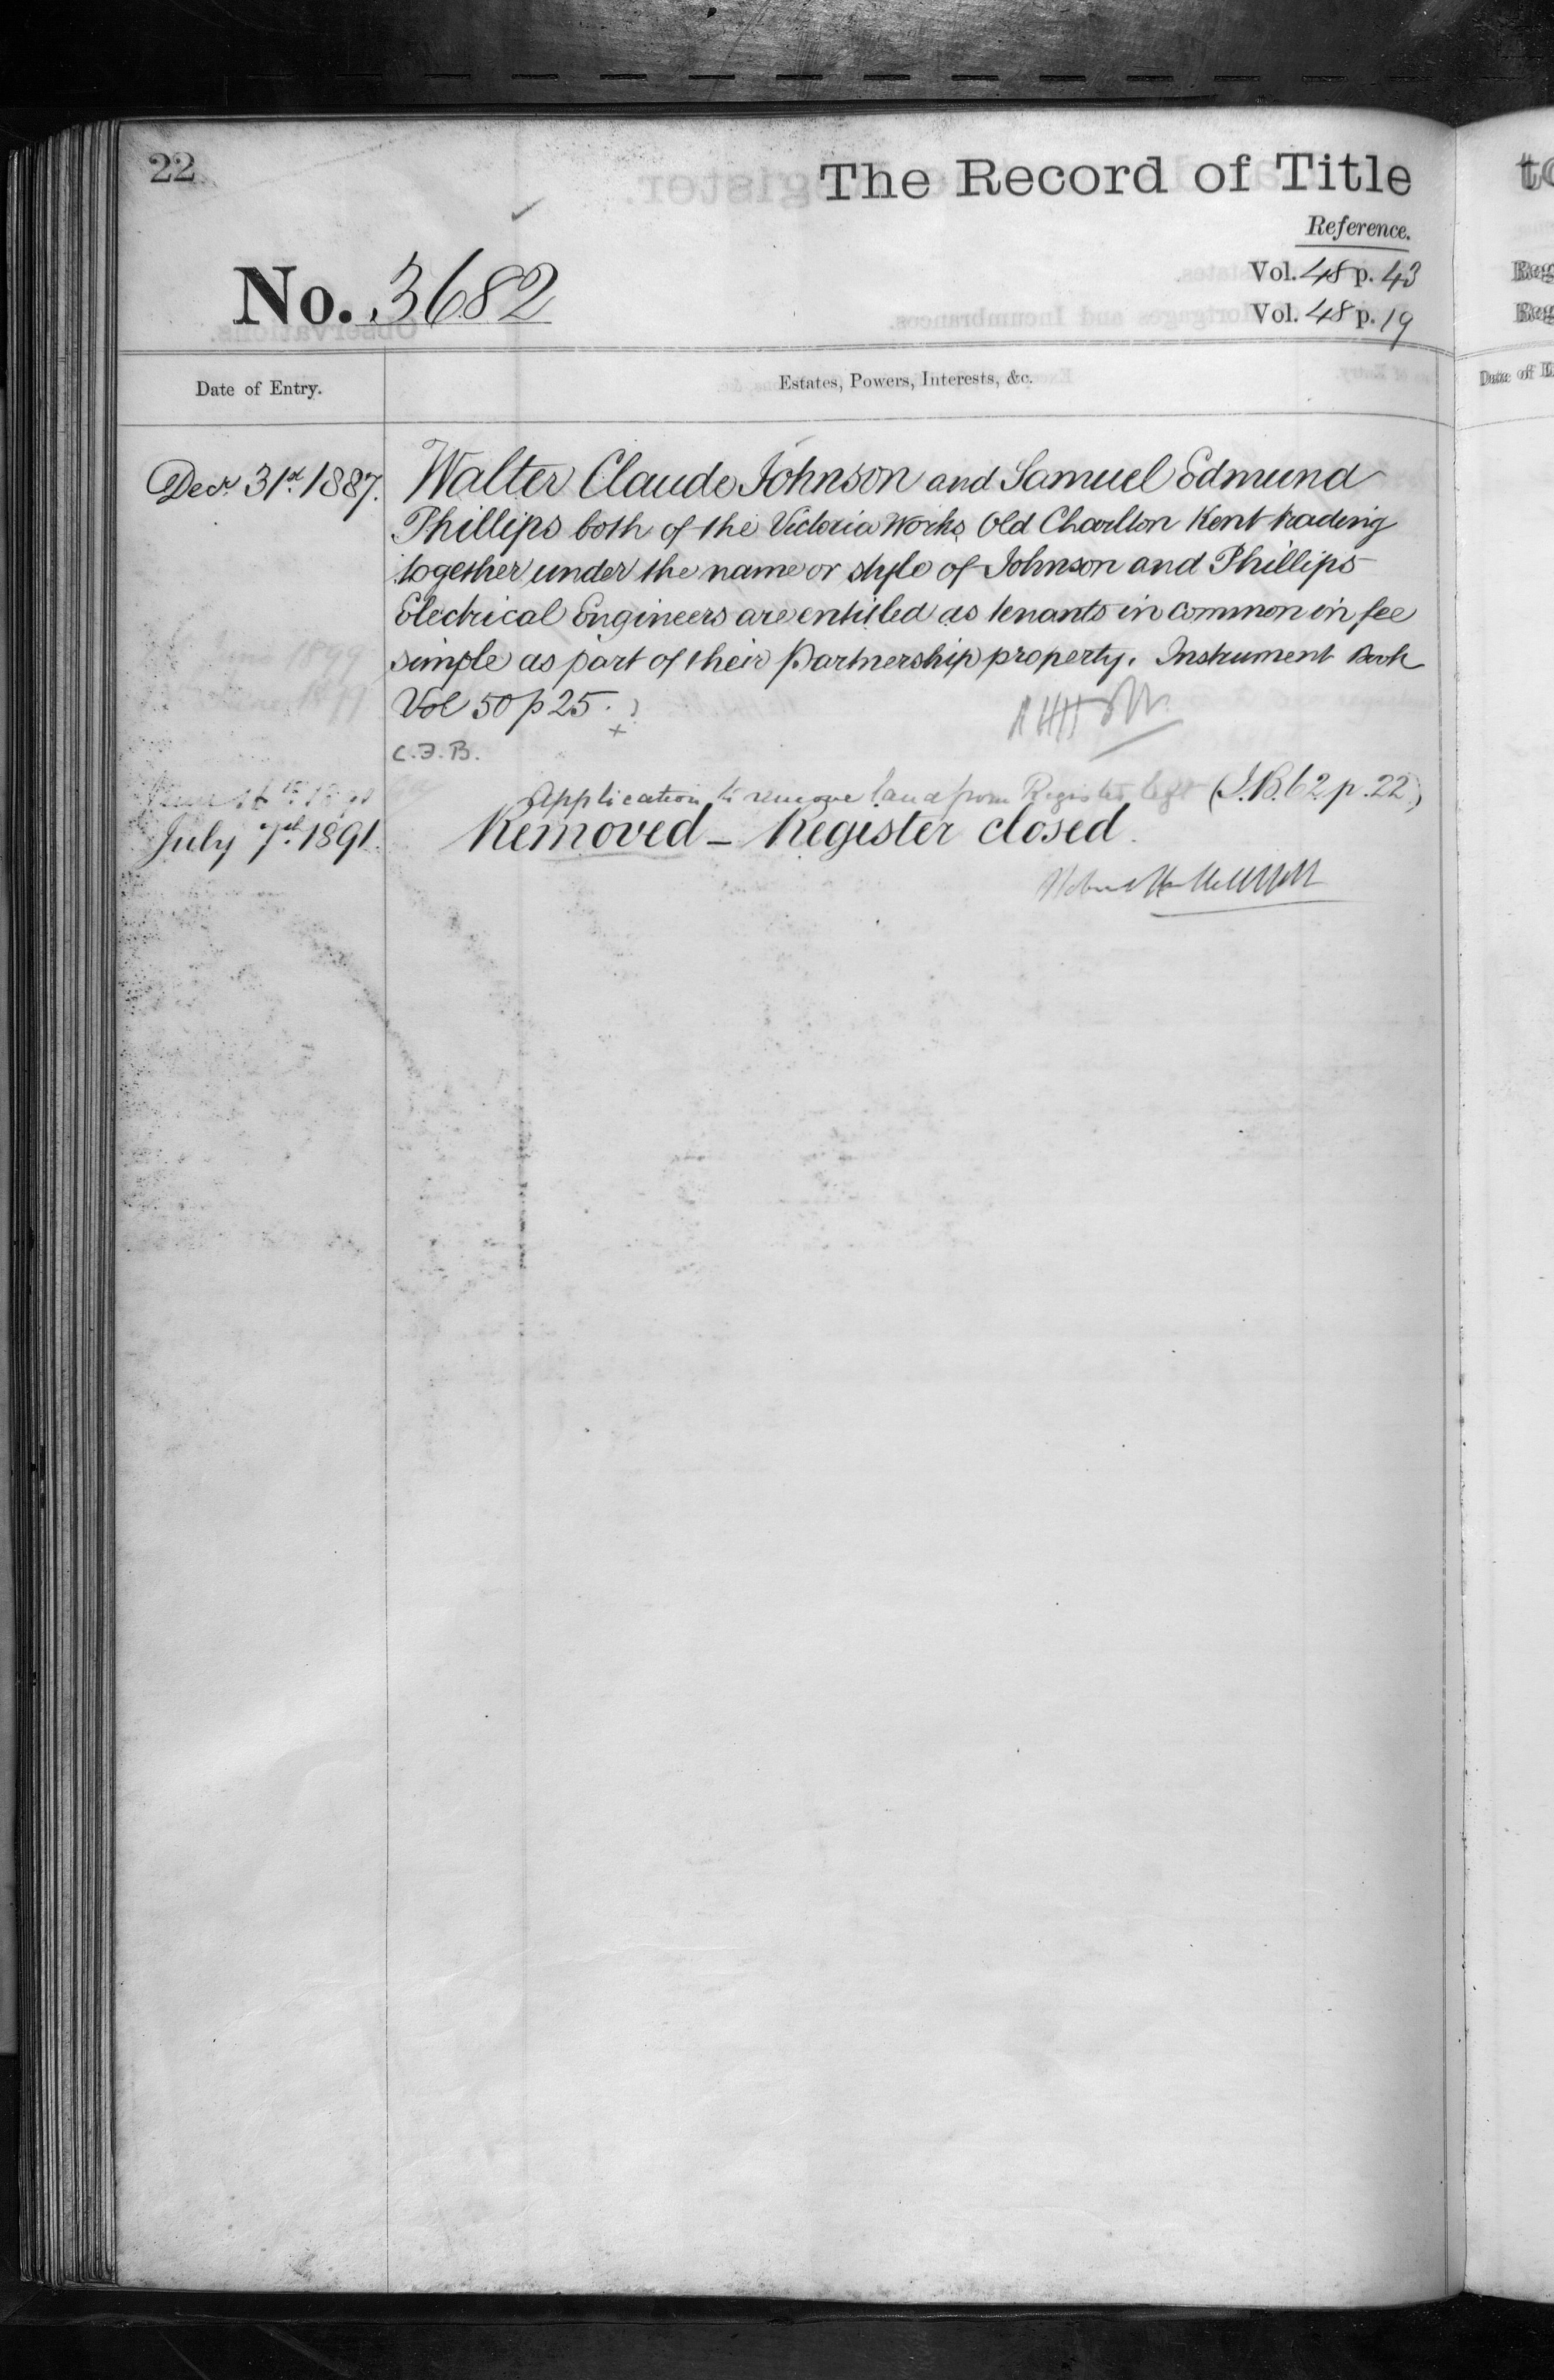 22
The Record of Title
Reference.
No. 3682
Vol. 48 p. 43
Vol. 48 p. 19
Date of Entry.
Estates, Powers, Interests, &c.
Decr. 31st. 1887.
Walter Claude Johnson and Samuel Edmund
Phillips both of the Victoria Works Old Charlton Kent trading
together under the name or style of Johnson and Phillips
Electrical Engineers are entitled as tenants in common in fee
simple as part of their Partnership property. Instrument Book
Vol 50 p 25.
C.J.B.
Application to remove land from Register left (I.B. 62 p. 22)
July 7th. 1891.
Removed – Register closed.